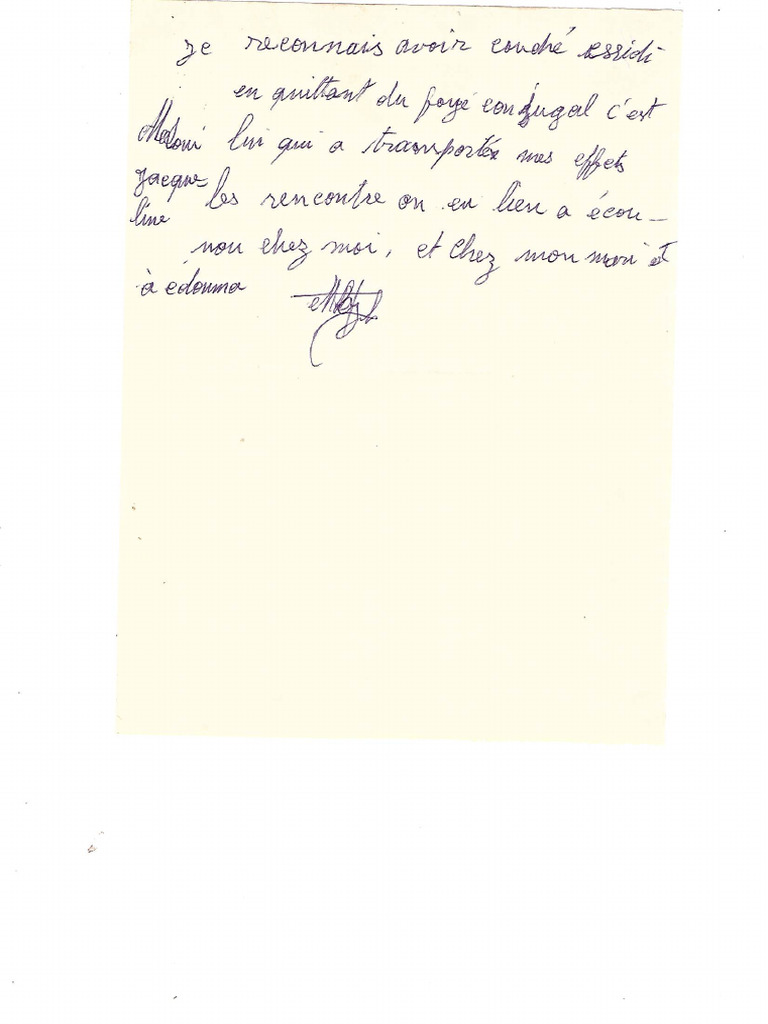 Je reconnais avoir couché assidi
en quittant du foyé conjugal c'est
lui qui a transportée mes effets
Jacque les rencontre on eu lieu a écou-
line
nou chez moi, et chez mon mari et
à edouma